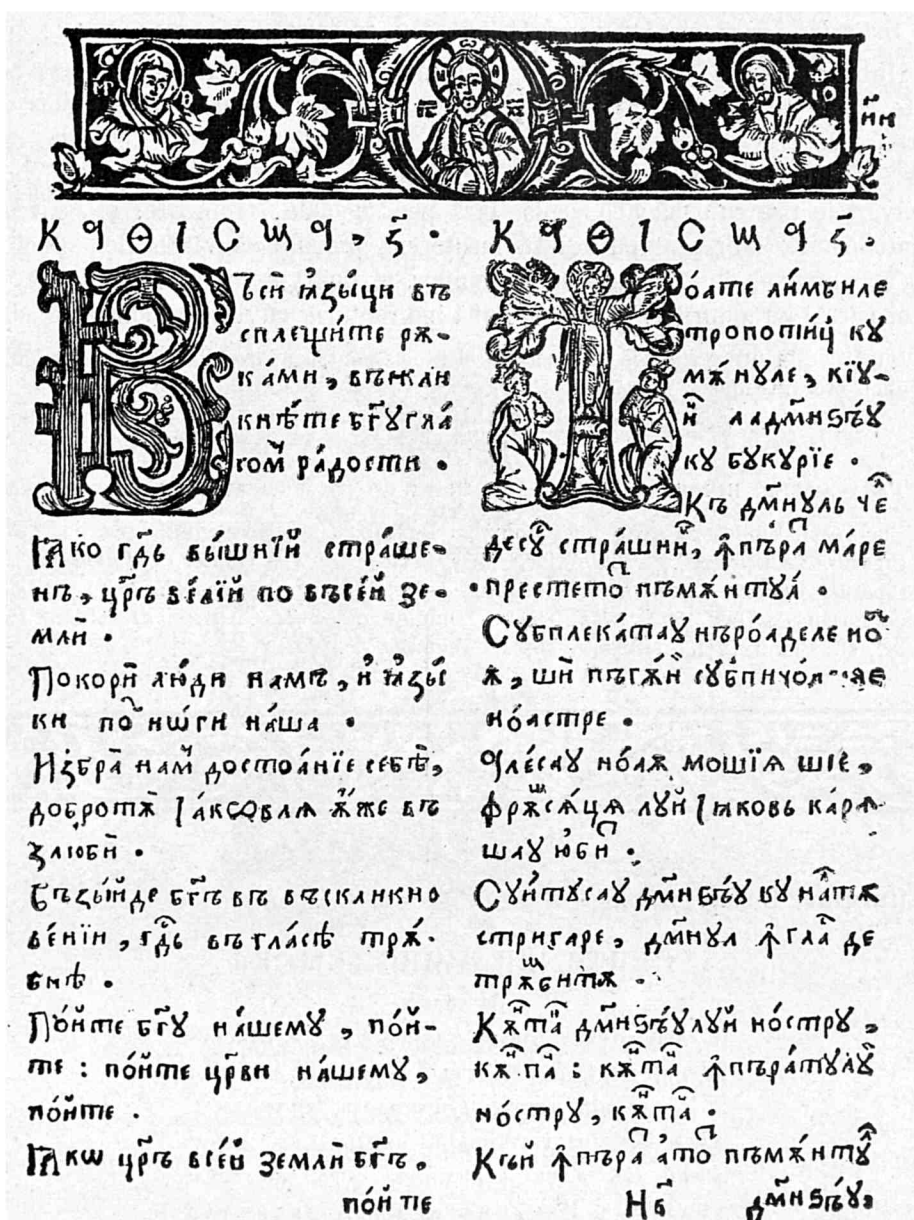 К А Ѳ І С М А , З҃ .
Въсѝ ꙗ҆зы́ци въ
сплещи́те рѫ-
ка́ми, въскли
кнѣ́те бг҃ꙋ гла́
гом̾ ра́дости .
Ꙗко гдⷭ҇ь вы́шнїй стра́ше-
нъ, цр҃ь ве́лїй по въсе́й зе-
мли̇̀ .
Покори̇̀ лю́ди намъ, и ꙗзы́
ки поⷣ нѡ́ги на́ша .
Избра̀ нам̾ достоа́нїе себѣ̀,
добротѫ̀ Іа́кѡвлѧ ѫ́же въ
злюби̇̀ .
Възы́йде бг҃ъ въ въскликно
ве́нїи, гдⷭ҇ь въ гла́сѣ трѫ́-
бнѣ .
По́йте бг҃ꙋ на́шемꙋ, по́й-
те : по́йте цр҃ви на́шемꙋ,
по́йте .
Ꙗкѡ цр҃ь всеѝ землѝ бг҃ъ .
по́йте
К А Ѳ І С М А З҃ .
То́ате ли́мбиле
тропоти́ц кꙋ
мѫ́нꙋле, кїꙋ-
и҆ⷩ ла дм҃нꙃъ́ꙋ
кꙋ бꙋкꙋрі́е .
Къ дм҃нꙋль чеⷧ
десꙋⷭ стра́шниⷩ, ꙟпъраⷬ ма́ре
престетоⷮ пъмѫ́нтꙋл .
Сꙋбплека́таꙋ нъро́аделе ноⷡ҇
ѫ, шѝ пъгѫ́нй сꙋбпичо́ареле
но́астре .
Але́саꙋ но́аѫ моші́ѧ шіѐ ,
фрꙋⷨсѧ́цѧ лꙋй Іꙗковь ка́рѧ-
шаꙋ юбиⷮ .
Сꙋи́тꙋсаꙋ дм҃нꙃъꙋ кꙋ на́лтѫ
стрига́ре, дм҃нꙋл ꙟ глаⷭ де
трѫⷨбицѫ .
Кѫⷩта́ц дм҃нꙃъ́ꙋлꙋй но́стрꙋ ,
кѫⷩтац : кѫⷩтац ꙟпъра́тꙋлꙋй
но́стрꙋ, кѫⷩтац .
Къй ꙟпъраⷮ а тоⷮ пъмѫ́нтꙋⷧ
дм҃нꙃъ́ꙋ,